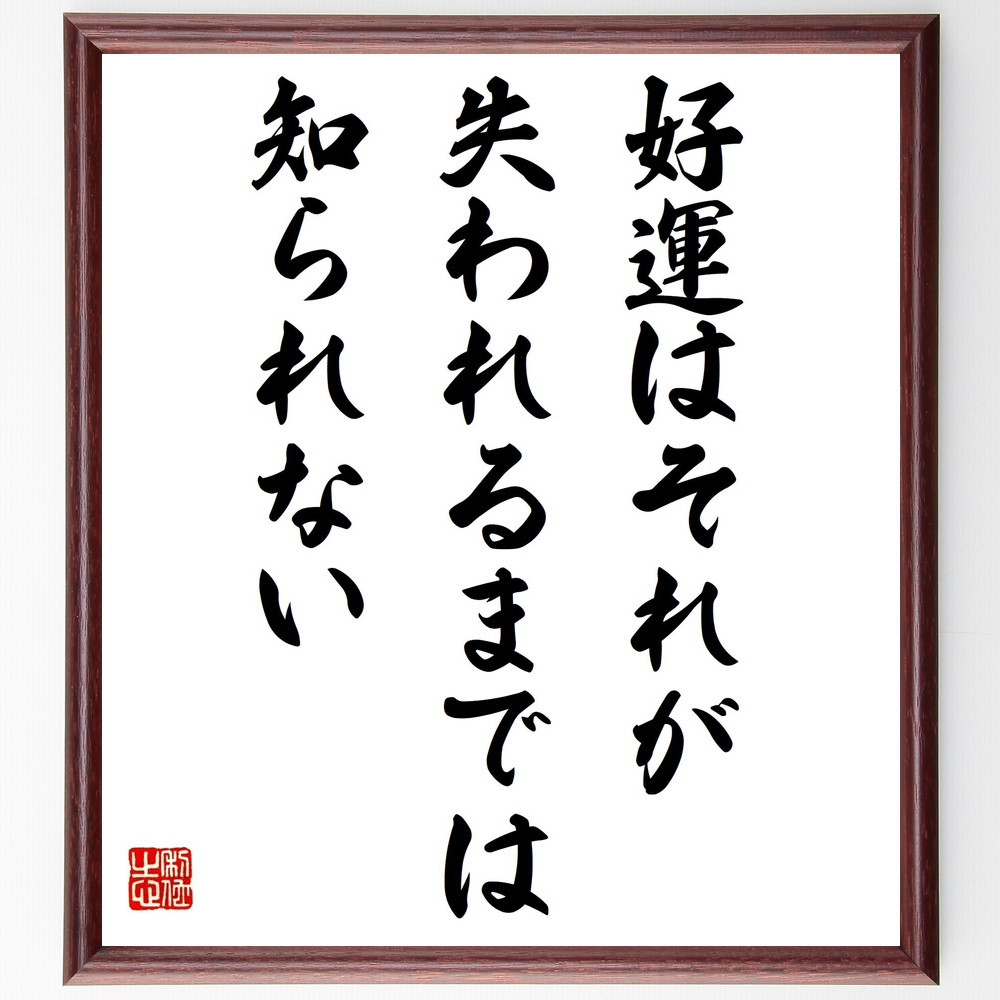 好運はそれが
失われるまでは
知られない